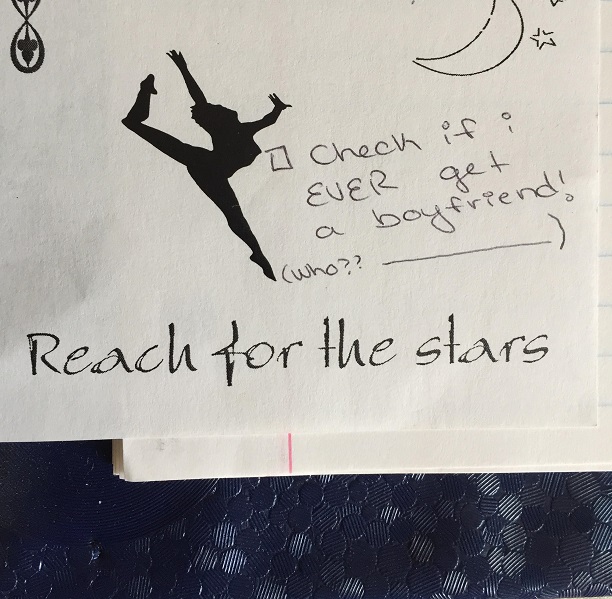 Check if i
EVER get
a boyfriend!
(who?? __________)
Reach for the stars